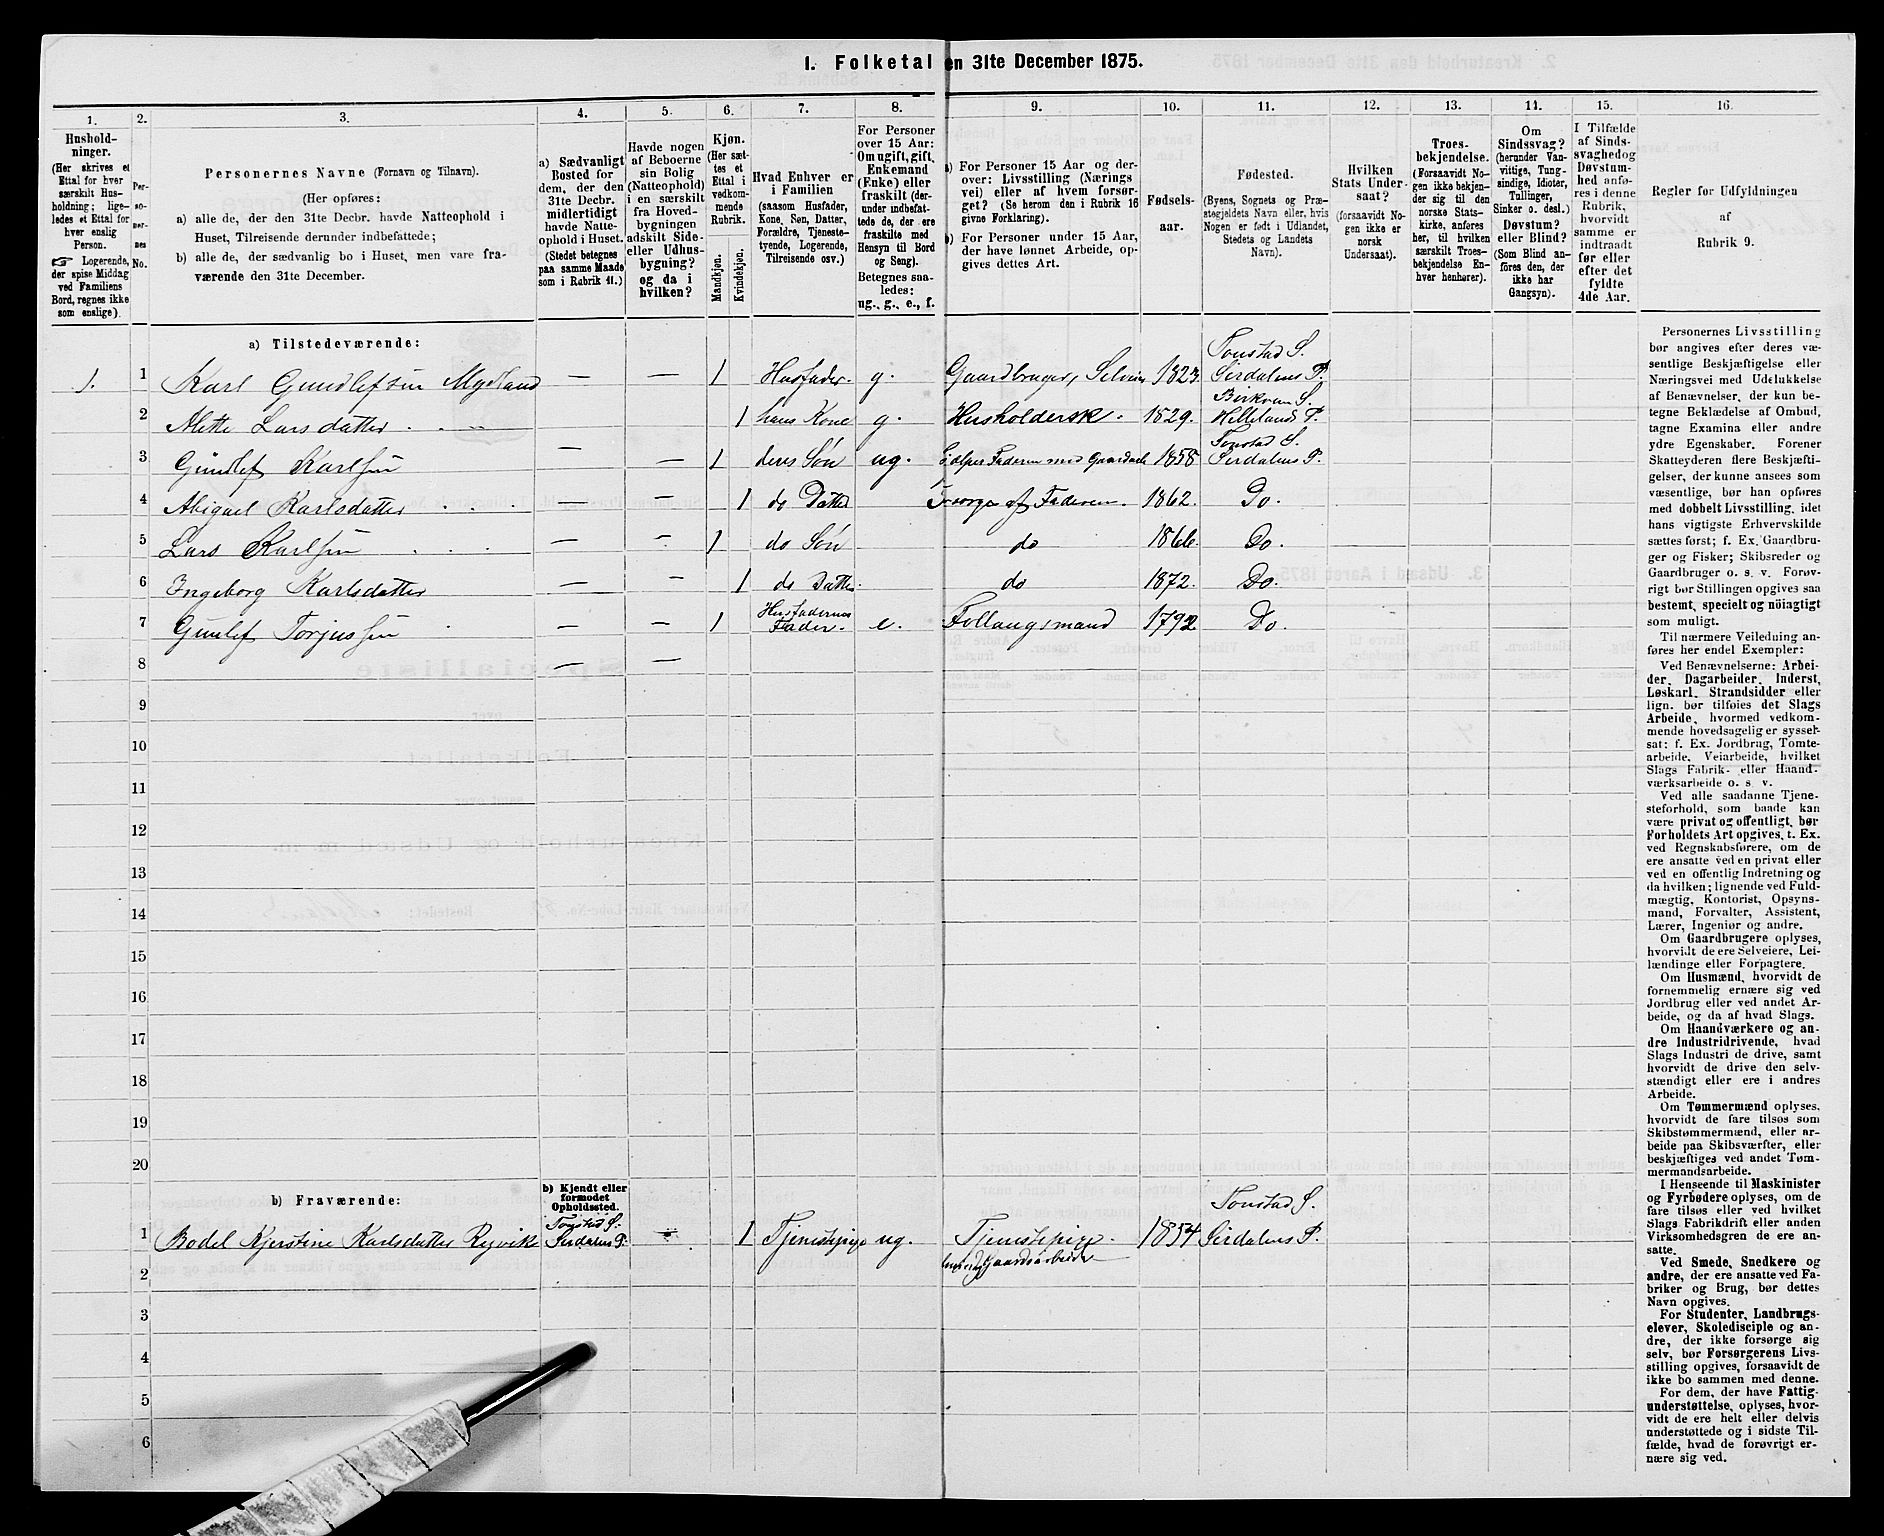 1. Folketal den 31te December 1875.
1.
Hushold-
ninger.
(Her skrives et
Ettal for hver
særskilt Hus-
holdning; lige-
ledes et Ettal for
hver enslig
Person.
☞ Logerende,
der spise Middag
ved Familiens
Bord, regnes ikke
som enslige).
2.
Per-
so-
ner-
nes
No.
3.
Personernes Navne (Fornavn og Tilnavn).
(Her opføres:
a) alle de, der den 31te Decbr. havde Natteophold i
Huset, Tilreisende derunder indbefattede;
b) alle de, der sædvanlig bo i Huset, men vare fra-
værende den 31te December.
4.
a) Sædvanligt
Bosted for
dem, der den
31te Decbr.
midlertidigt
havde Natte-
ophold i Huset.
(Stedet betegnes
paa samme Maade
som i Rubrik 11.)
5.
Havde nogen
af Beboerne
sin Bolig
(Natteophold)
i en særskilt
fra Hoved-
bygningen
adskilt Side-
eller Udhus-
bygning?
og da i
hvilken?
6.
Kjøn.
(Her sæt-
tes et
Ettal i
vedkom-
mende
Rubrik.
Mandkjøn.
Kvindekjøn.
7.
Hvad Enhver er
i Familien
(saasom Husfader,
Kone, Søn, Datter,
Forældre, Tjeneste-
tyende, Logerende,
Tilreisende osv.)
8.
For Personer
over 15 Aar:
Om ugift, gift,
Enkemand
(Enke) eller
fraskilt (der-
under indbefat-
tede de, der ere
fraskilte med
Hensyn til Bord
og Seng).
Betegnes saa-
ledes:
ug., g., e., f.
9.
a) For Personer 15 Aar og der-
over: Livsstilling (Nærings-
vei) eller af hvem forsør-
get? (Se herom den i Rubrik 16
givne Forklaring).
b) For Personer under 15 Aar,
der have lønnet Arbeide, op-
gives dettes Art.
10.
Fødsels-
aar.
11.
Fødested.
(Byens, Sognets og Præ-
stegjeldets Navn eller, hvis
Nogen er født i Udlandet,
Stedets og Landets
Navn).
12.
Hvilken
Stats Under-
saat?
(forsaavidt No-
gen ikke er
norsk
Undersaat).
13.
Troes-
bekjendelse.
(Forsaavidt No-
gen ikke bekjen-
der sig til den
norske Stats-
kirke, anføres
her, til hvilken
særskilt Troes-
bekjendelse En-
hver henhører).
14.
Om
Sindssvag?
(herunder Van-
vittige, Tung-
sindige, Idioter,
Tullinger,
Sinker o. desl.)
Døvstum?
eller Blind?
(Som Blind an-
føres den, der
ikke har
Gangsyn).
15.
I Tilfælde
af Sinds-
svaghed og
Døvstum-
hed anfø-
res i denne
Rubrik,
hvorvidt
samme er
indtraadt
før eller
efter det
fyldte
4de Aar.
16.
Regler for Udfyldningen
af
Rubrik 9.
a) Tilstedeværende:
1. 1 Karl Gundlefsen Mydland — — 1 Husfader. g. Gaardbruger, Selveier 1823. Tonstad S.
Sirdalens P.
2 Mette Larsdatter 1 hans Kone g. Husholderske. 1829. S.
Hellelands P.
3 Gundlef Karlsen — — 1 deres Søn ug. hjælper Faderen med 1858 Tonstad S.
Sirdalens P.
4 Abigael Karlsdatter — — 1 do Datter Forsørges af Faderen. 1862. Do.
5 Lars Karlsen — — 1 do Søn do 1866. Do.
6 Ingeborg Karlsdatter — — 1 do Datter do 1872. Do.
7 Gunlef Torjussen — — 1 Husfaderens
Fader. e. Follaugsmand 1792. Do.
8 — —
9
10
11
12
13
14
15
16
17
18
19
20
b) Fraværende:
b) Kjendt eller
formodet
Opholdssted.
1 Bodel Kjerstine Karlsdatter Tonstad S.
Sirdalens P. — 1 Tjenestepige ug. Tjenestepige.
Gaardsarbeide 1854 Tonstad S.
Sirdalens P.
2
3
4
5
6
Personernes Livsstilling
bør angives efter deres væ-
sentlige Beskjæftigelse eller
Næringsvei med Udelukkelse
af Benævnelser, der kun be-
tegne Beklædelse af Ombud,
tagne Examina eller andre
ydre Egenskaber. Forener
Skatteyderen flere Beskjæfti-
gelser, der kunne ansees som
væsentlige, bør han opføres
med dobbelt Livsstilling, idet
hans vigtigste Erhvervskilde
sættes først; f. Ex. Gaardbru-
ger og Fisker; Skibsreder og
Gaardbruger o. s. v. Forøv-
rigt bør Stillingen opgives saa
bestemt, specielt og nöiagtigt
som muligt.
Til nærmere Veiledning an-
føres her endel Exempler:
Ved Benævnelserne: Arbei-
der, Dagarbeider, Inderst,
Løskarl, Strandsidder eller
lign. bør tilføies det Slags
Arbeide, hvormed vedkom-
mende hovedsagelig er syssel-
sat; f. Ex. Jordbrug, Tomte-
arbeide, Veiarbeide, hvilket
Slags Fabrik- eller Haand-
værksarbeide o. s. v.
Ved alle saadanne Tjene-
steforhold, som baade kan
være privat og offentligt, bør
Forholdets Art opgives, t. Ex.
ved Regnskabsførere, om de
ere ansatte ved en privat eller
ved en offentlig Indretning og
da hvilken; lignende ved Fuld-
mægtig, Kontorist, Opsyns-
mand, Forvalter, Assistent,
Lærer, Ingeniør og andre.
Om Gaardbrugere oplyses,
hvorvidt de ere Selveiere, Lei-
lændinge eller Forpagtere.
Om Husmænd, hvorvidt de
fornemmelig ernære sig ved
Jordbrug eller ved andet Ar-
beide, og da af hvad Slags.
Om Haandværkere og an-
dre Industridrivende, hvad
Slags Industri de drive, samt
hvorvidt de drive den selv-
stændigt eller ere i andres
Arbeide.
Om Tømmermænd oplyses,
hvorvidt de fare tilsøs som
Skibstømmermænd, eller ar-
beide paa Skibsværfter, eller
beskjæftiges ved andet Tøm-
mermandsarbeide.
I Henseende til Maskinister
og Fyrbødere oplyses, om de
fare tilsøs eller ved hvilket
Slags Fabrikdrift eller anden
Virksomhedsgren de ere an-
satte.
Ved Smede, Snedkere og
andre, der ere ansatte ved Fa-
briker og Brug, bør dettes
Navn opgives.
For Studenter, Landbrugs-
elever, Skoledisciple og an-
dre, der ikke forsørge sig
selv, bør Forsørgerens Livs-
stilling opgives, forsaavidt de
ikke bo sammen med denne.
For dem, der have Fattig-
understøttelse, oplyses, hvor-
vidt de ere helt eller delvis
understøttede og i sidste Til-
fælde, hvad de forøvrigt er-
nære sig ved.